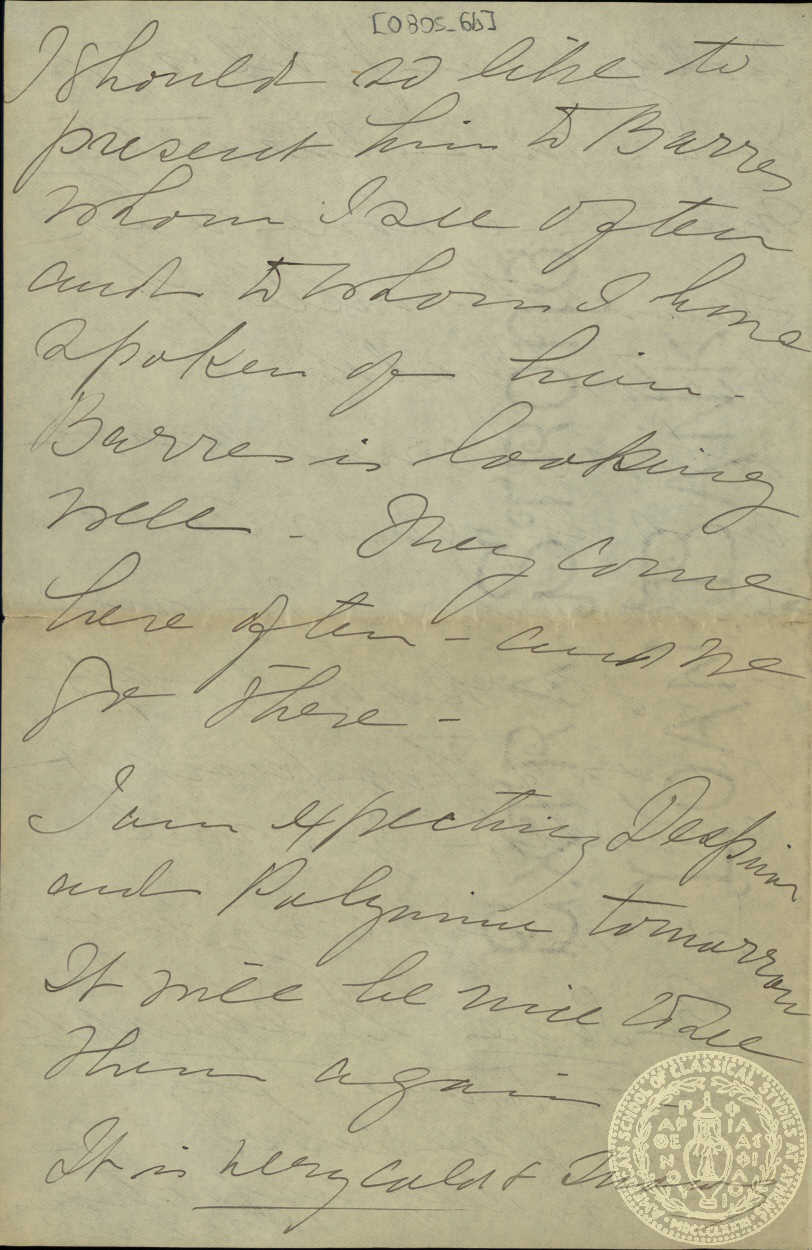 [0805_6b]
I should so like to
present him to Barres
whom I see often
and to whom I have
spoken of him -
Barres is looking
well - They come
here often - and we
go there -
I am expecting Despina
and Polymnie tomorrow
It will be nice to see
them again -
It is very cold &
AMERICAN SCHOOL OF CLASSICAL STUDIES AT ATHENS
MDCCCLXXXI